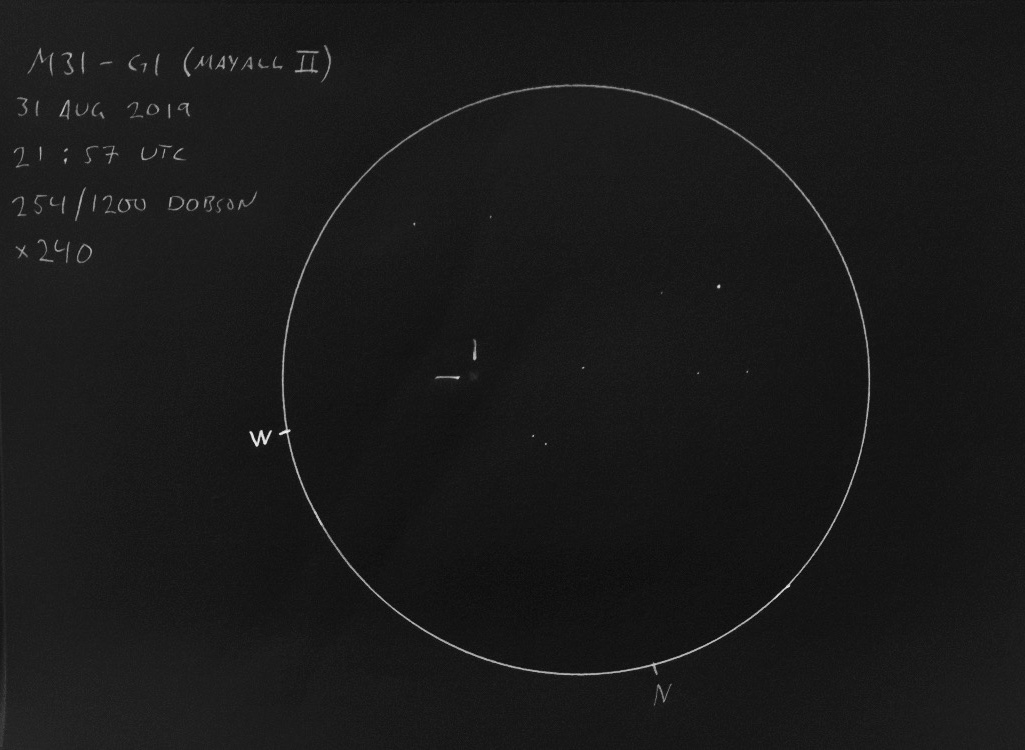 M31 - G1 (MAYALL II)
31 AUG 2019
21 : 57 UTC
254/1200 DOBSON
×240
W
N